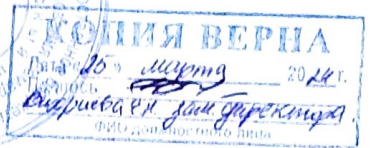 КОПИЯ ВЕРНА
Дата «20» марта 2024 г.
Подпись
зам директора
ФИО должностного лица